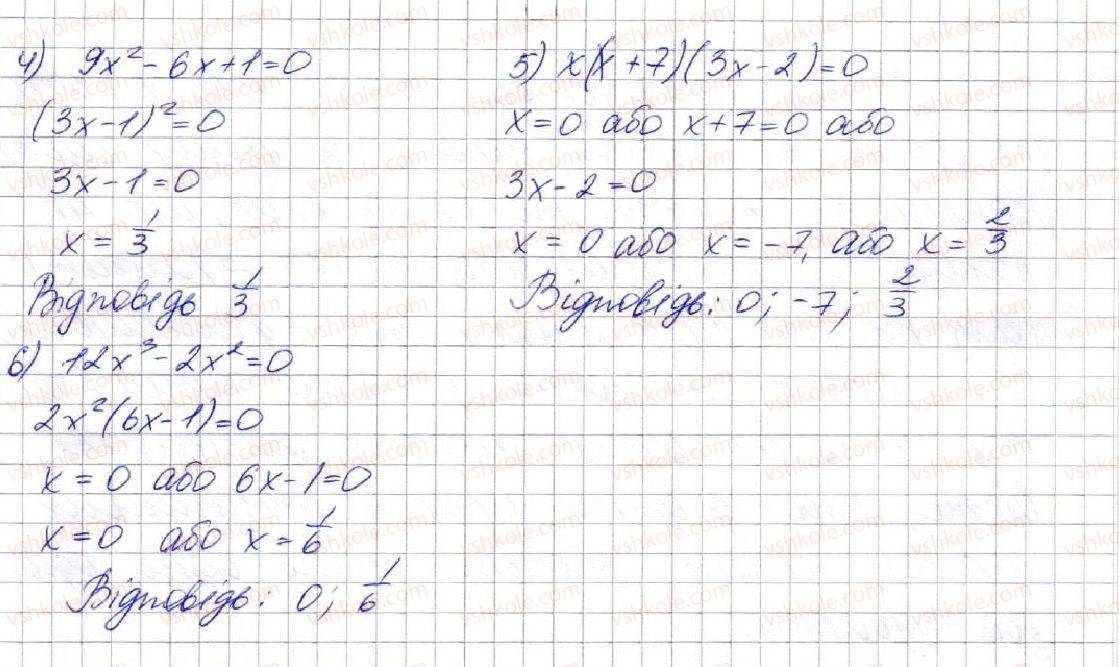 4) 9x² - 6x + 1 = 0
(3x - 1)² = 0
3x - 1 = 0
x = 1/3
Відповідь 1/3
6) 12x³ - 2x² = 0
2x²(6x - 1) = 0
x = 0 або 6x - 1 = 0
x = 0 або x = 1/6
Відповідь: 0; 1/6
5) x(x + 7)(3x - 2) = 0
x = 0 або x + 7 = 0 або
3x - 2 = 0
x = 0 або x = -7, або x = 2/3
Відповідь: 0; -7; 2/3
vshkole.com